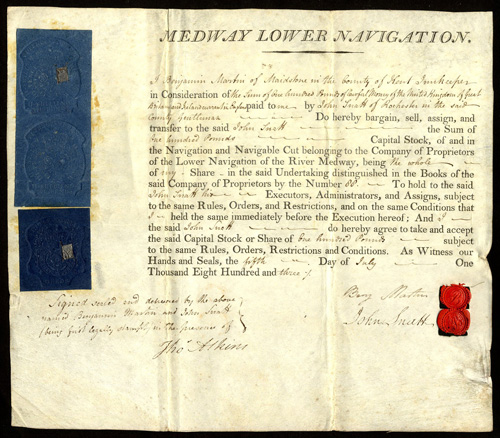 MEDWAY LOWER NAVIGATION.
I Benjamin Martin of Maidstone in the County of Kent Innkeeper
in Consideration of the Sum of one hundred Pounds of Lawful Money of the United Kingdom of Great
Britain and Ireland paid to me by John Snatt of Rochester in the said
County Gentleman Do hereby bargain, sell, assign, and
transfer to the said John Snatt the Sum of
One hundred Pounds Capital Stock, of and in
the Navigation and Navigable Cut belonging to the Company of Proprietors
of the Lower Navigation of the River Medway, being the whole
of my Share in the said Undertaking distinguished in the Books of the
said Company of Proprietors by the Number 88. To hold to the said
John Snatt his Executors, Administrators, and Assigns, subject
to the same Rules, Orders, and Restrictions, and on the same Conditions that
I held the same immediately before the Execution hereof; And I
the said John Snatt do hereby agree to take and accept
the said Capital Stock or Share of One hundred Pounds subject
to the same Rules, Orders, Restrictions and Conditions. As Witness our
Hands and Seals, the fifth Day of July One
Thousand Eight Hundred and three
Signed sealed and delivered by the above
named Benjamin Martin and John Snatt
(being first legally stampt) in the presence of
Thos Atkins
Benj Martin
John Snatt